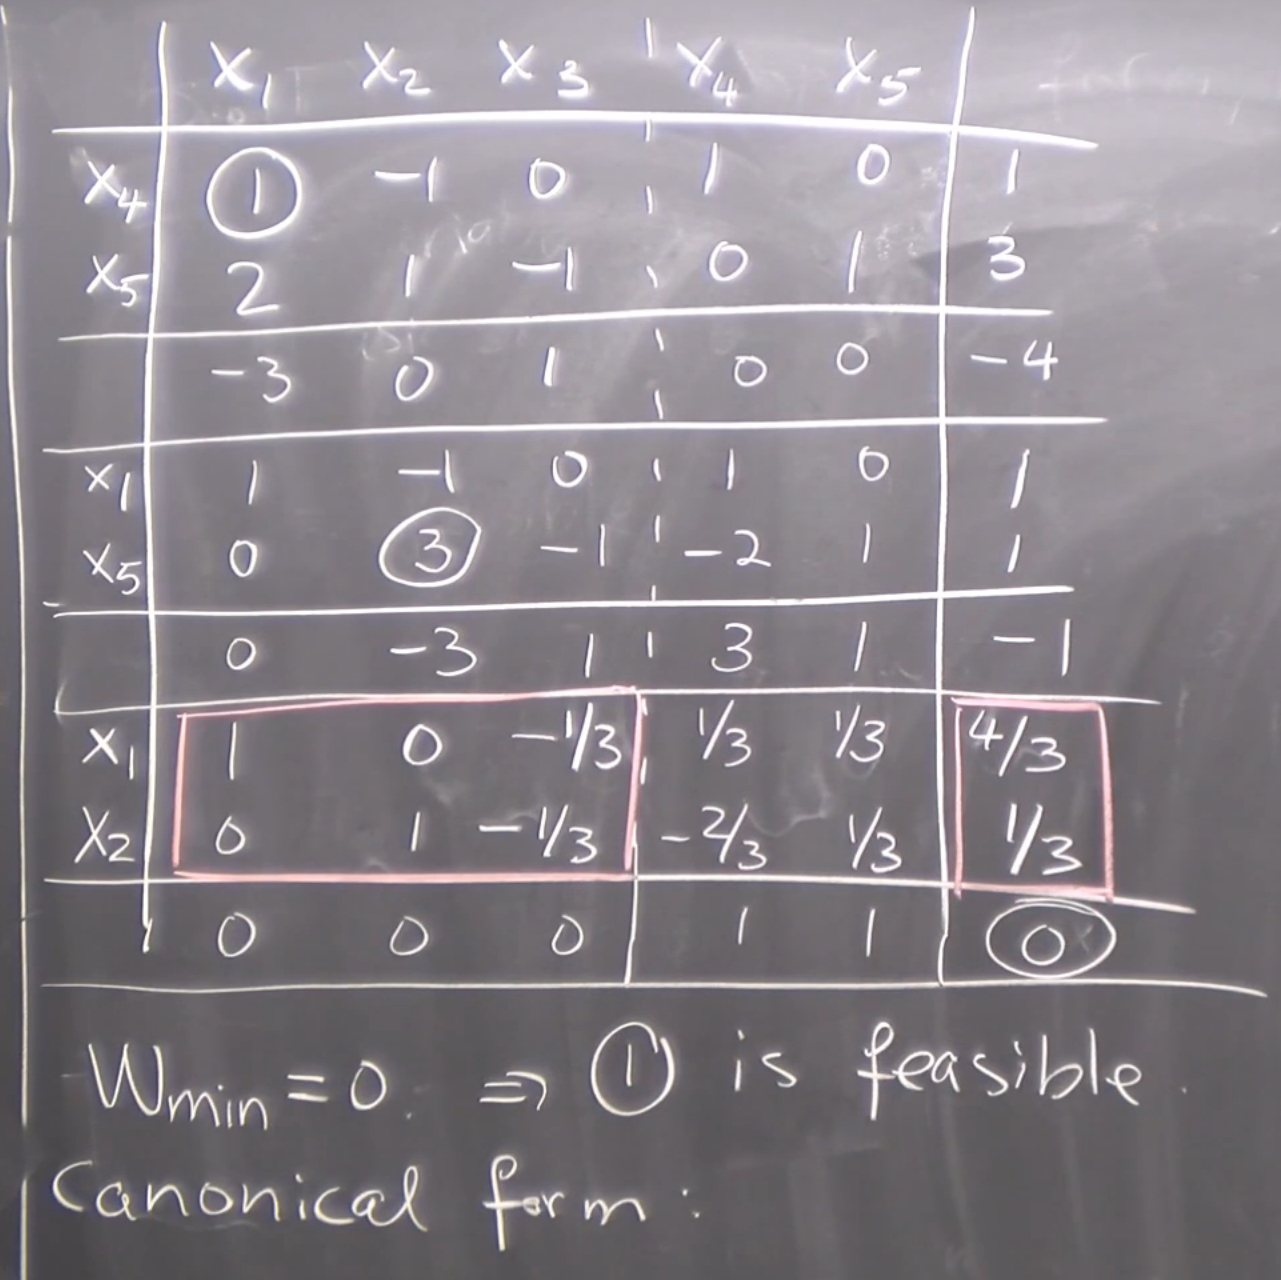 x₁ x₂ x₃ x₄ x₅
x₄ 1 -1 0 1 0 1
x₅ 2 1 -1 0 1 3
-3 0 1 0 0 -4
x₁ 1 -1 0 1 0 1
x₅ 0 3 -1 -2 1 1
0 -3 1 3 1 -1
x₁ 1 0 -1/3 1/3 1/3 4/3
x₂ 0 1 -1/3 -2/3 1/3 1/3
0 0 0 1 1 0
Wmin = 0. ⇒ ① is feasible.
Canonical form: